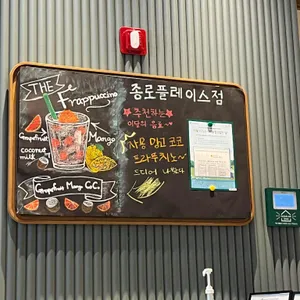 THE
Frappuccino
Grapefruit
Mango
coconut
milk
Grapefruit Mango CoCo
종로플레이스점
★추천하는★
이달의 음료~
자몽 망고 코코
프라푸치노~
드디어 나왔다